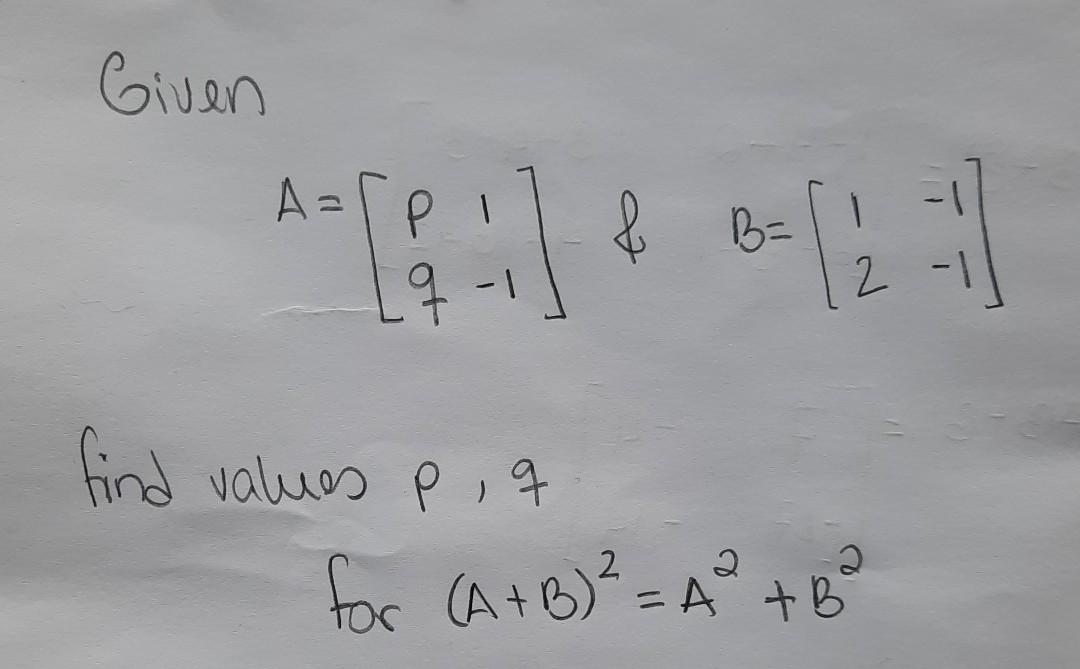 Given
A = [ p 1 ; q -1 ] & B = [ 1 -1 ; 2 -1 ]
find values p , q
for (A+B)² = A² + B²